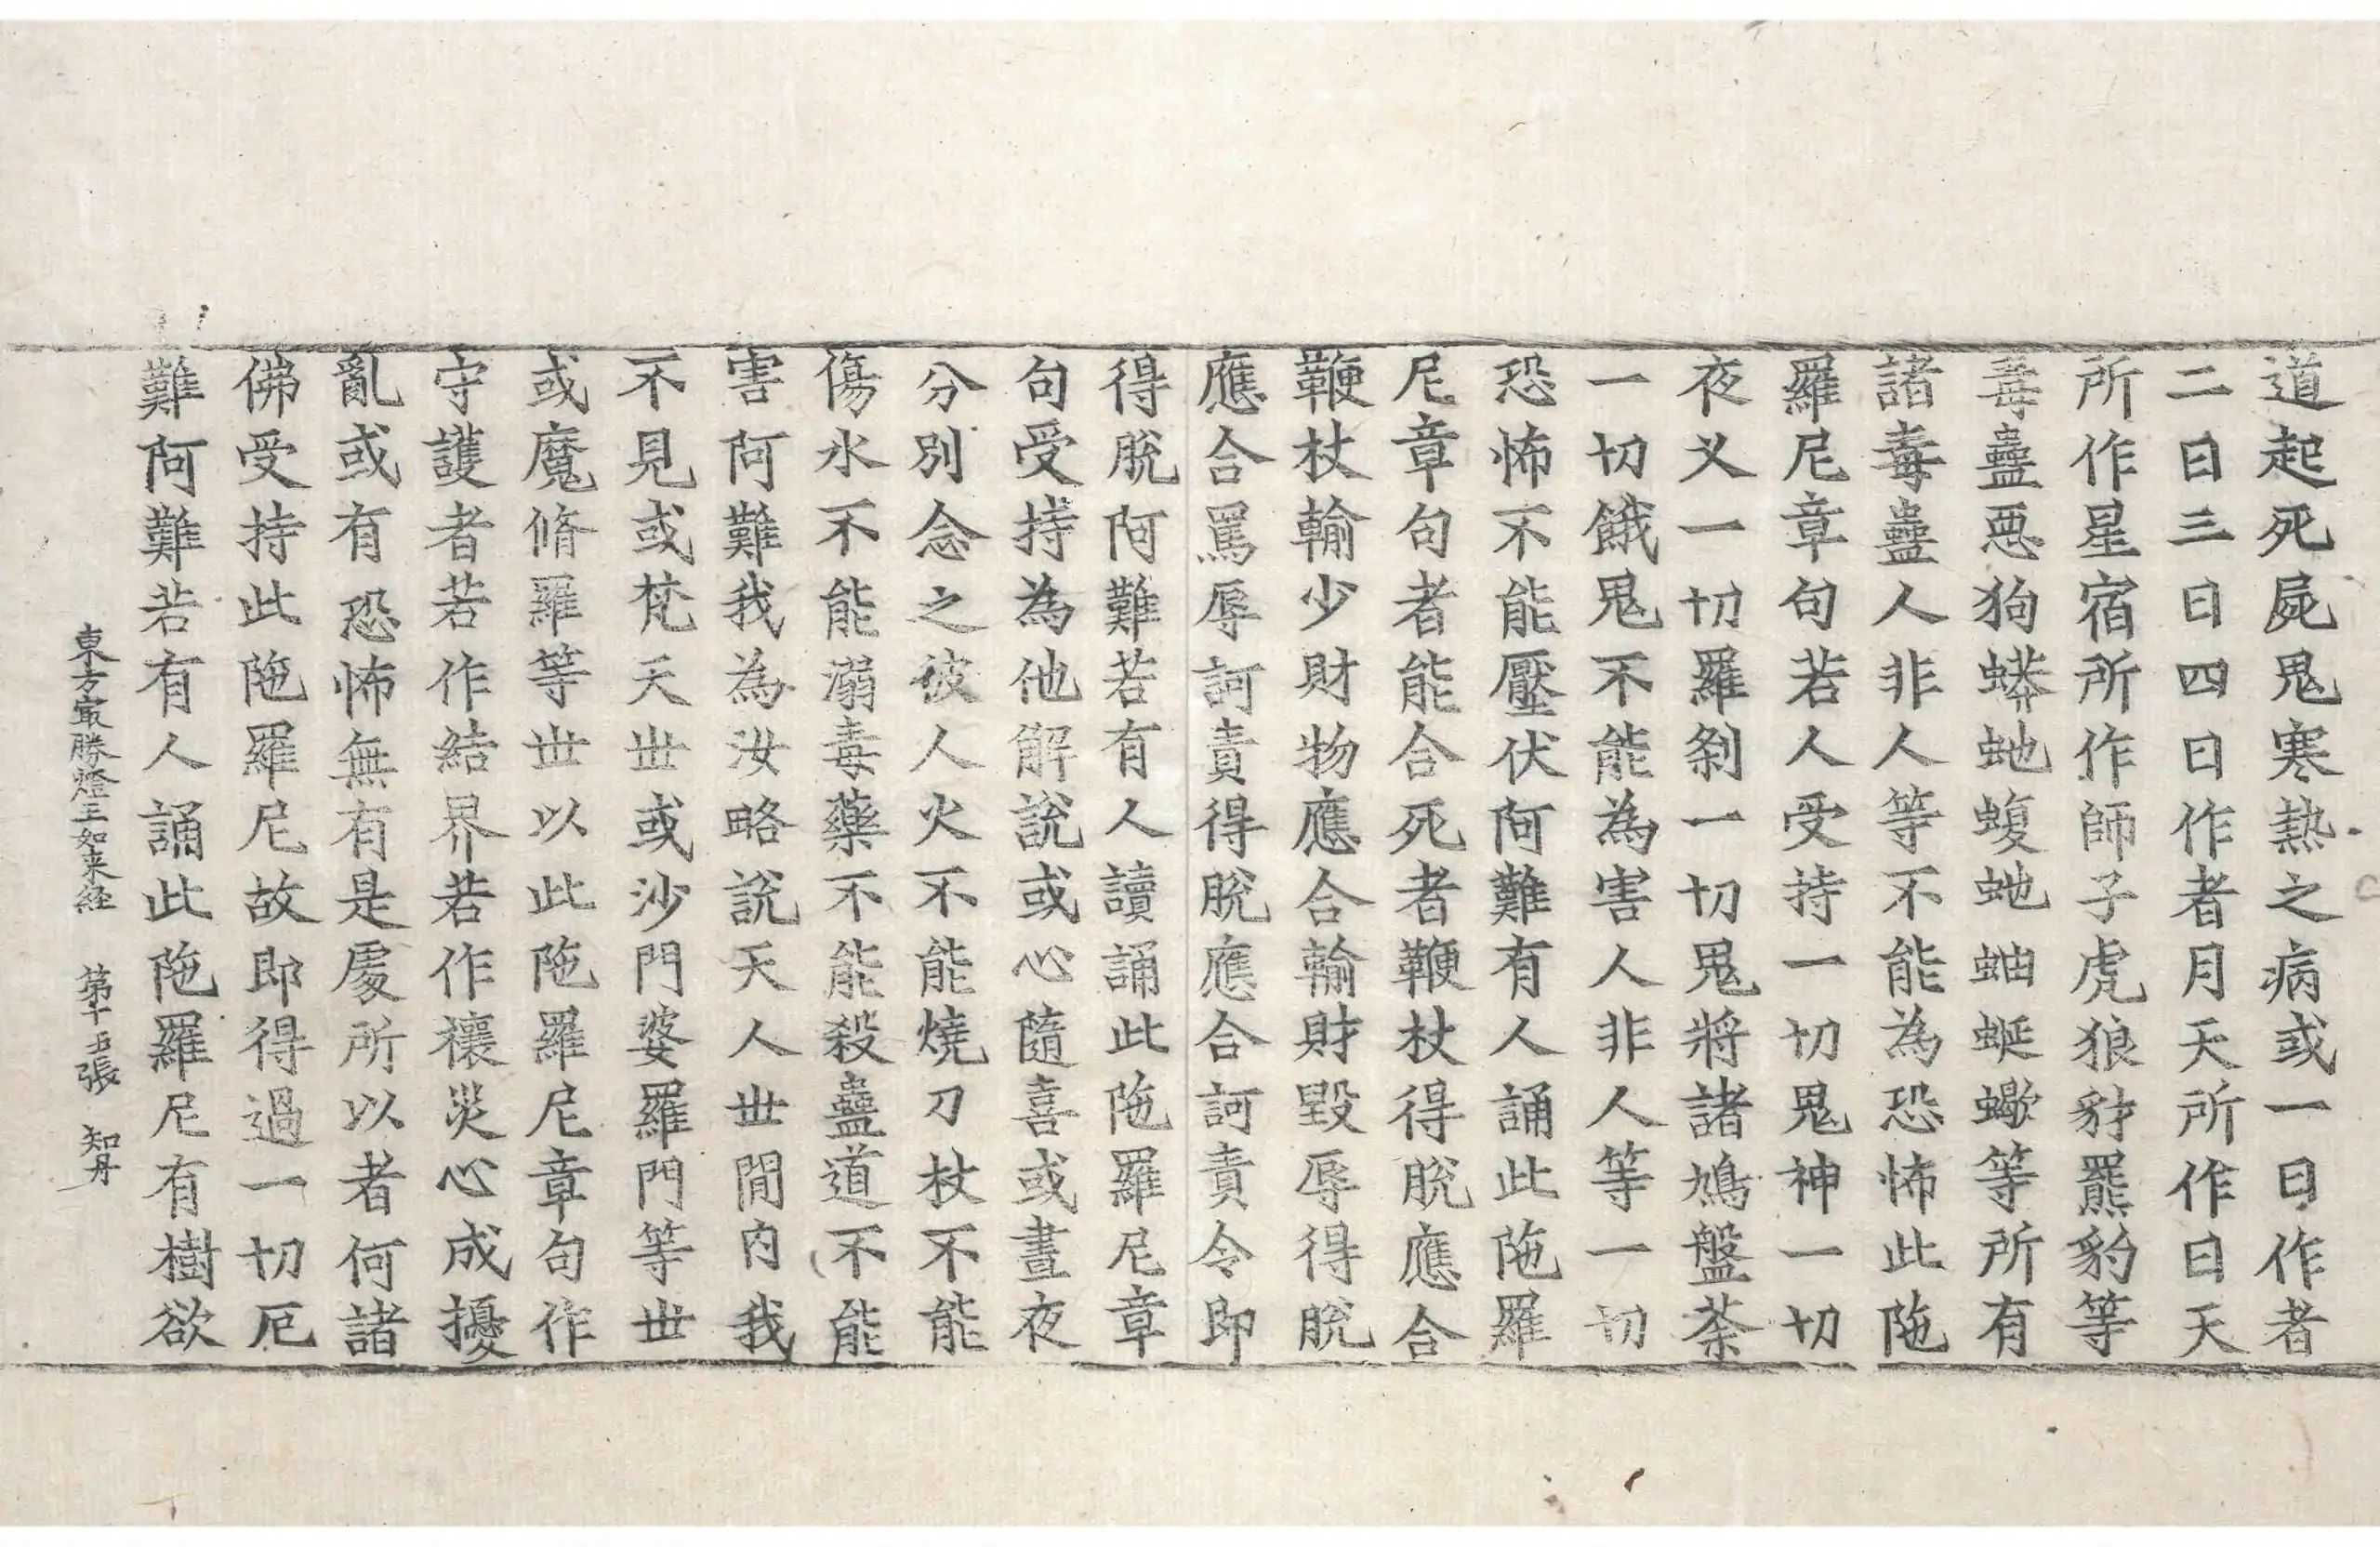 道起死屍鬼寒熱之病或一日作者
二日三日四日作者月天所作日天
所作星宿所作師子虎狼豺羆豹等
毒蠱惡狗蟒虵蝮虵蚰蜒蠍等所有
諸毒蠱人非人等不能為恐怖此陁
羅尼章句若人受持一切鬼神一切
夜叉一切羅剎一切鬼將諸鳩盤荼
一切餓鬼不能為害人非人等一切
恐怖不能壓伏阿難有人誦此陁羅
尼章句者能合死者鞭杖得脫應合
鞭杖輸少財物應合輸財毀辱得脫
應合罵辱訶責得脫應合訶責令即
得脫阿難若有人讀誦此陁羅尼章
句受持為他解說或心隨喜或晝夜
分別念之彼人火不能燒刀杖不能
傷水不能溺毒藥不能殺蠱道不能
害阿難我為汝略說天人世間內我
不見或梵天世或沙門婆羅門等世
或魔脩羅等世以此陁羅尼章句作
守護者若作結界若作禳災心成擾
亂或有恐怖無有是處所以者何諸
佛受持此陁羅尼故即得過一切厄
難阿難若有人誦此陁羅尼有樹欲
東方㝡勝燈王如来経　第十五張　知丹